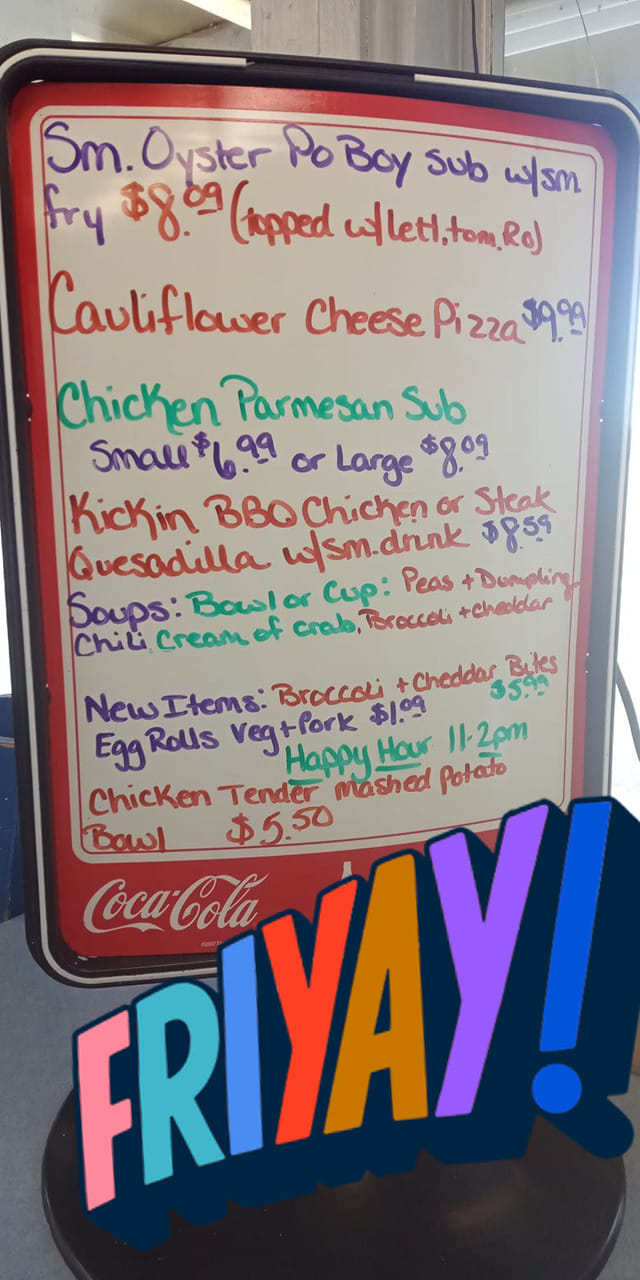 Sm. Oyster Po Boy Sub w/sm
fry $8.09 (topped w/Lett,tom,Ro)
Cauliflower Cheese Pizza $9.99
Chicken Parmesan Sub
Small $6.99 or Large $8.09
Kickin BBQ Chicken or Steak
Quesadilla w/sm.drink $8.59
Soups: Bowl or Cup: Peas + Dumpling
Chili Cream of crab, Broccoli + cheddar
New Items: Broccoli + Cheddar Bites
$5.99
Egg Rolls Veg + Pork $1.09
Happy Hour 11-2pm
Chicken Tender Mashed Potato
Bowl $5.50
Coca-Cola
FRIYAY!